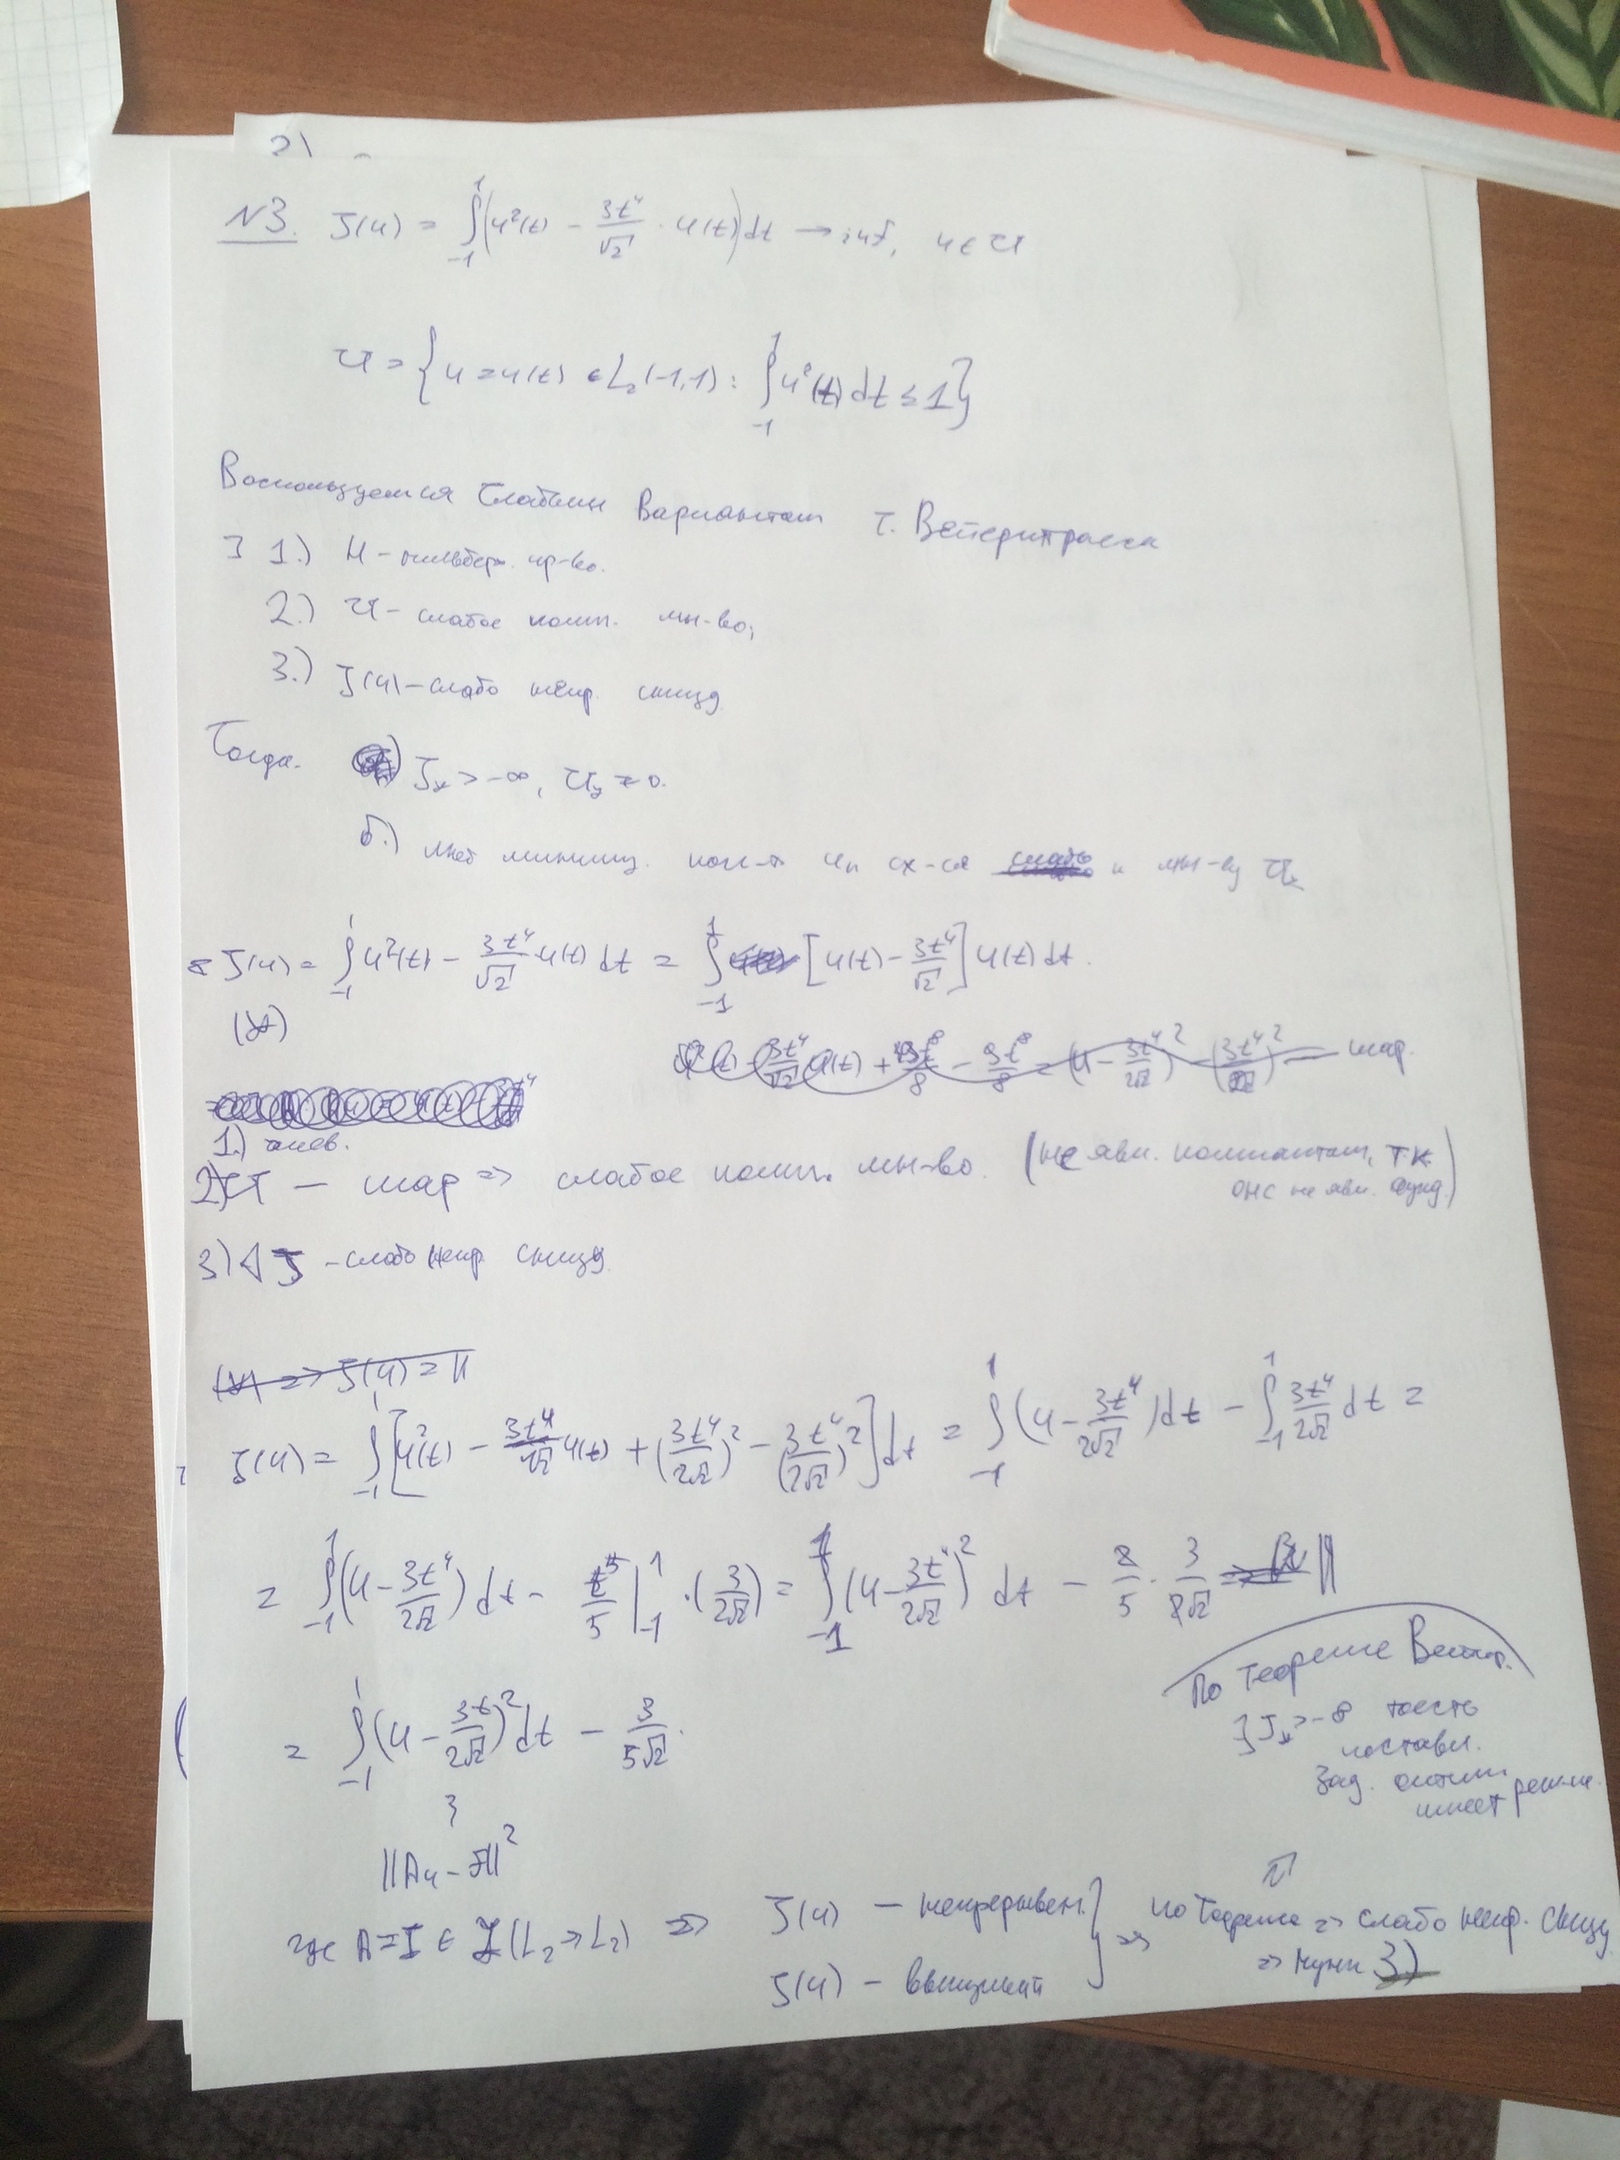 2)
N3. J(u) = ∫₋₁¹ (u²(t) − 3t⁴/√2 · u(t)) dt → inf, u ∈ U
U = { u = u(t) ∈ L₂(−1,1) : ∫₋₁¹ u²(t) dt ≤ 1 }
Воспользуемся слабым вариантом т. Вейерштрасса
] 1.) H – гильберт. пр-во.
2.) U – слабое комп. мн-во;
3.) J(u) – слабо непр. снизу
Тогда. J* > −∞, U* ≠ 0.
б.) люб миним. посл-ть uₙ сх-ся к мн-ву U*
J(u) = ∫₋₁¹ u²(t) − 3t⁴/√2 · u(t) dt = ∫₋₁¹ [u(t) − 3t⁴/√2] u(t) dt.
(*)
шар.
1.) очев.
2) U – шар => слабое комп. мн-во. (не явл. компактом, т.к.
онс не явл. фунд.)
3) J – слабо непр снизу
(*) => J(u) = ||
J(u) = ∫₋₁¹ [u²(t) − 3t⁴/√2 u(t) + (3t⁴/2√2)² − (3t⁴/2√2)²] dt = ∫₋₁¹ (u − 3t⁴/2√2) dt − ∫₋₁¹ 3t⁴/2√2 dt =
= ∫₋₁¹ (u − 3t⁴/2√2) dt − t⁵/5 |₋₁¹ · (3/2√2) = ∫₋₁¹ (u − 3t⁴/2√2)² dt − 2/5 · 3/2√2
По теореме Вейер.
= ∫₋₁¹ (u − 3t/2√2)² dt − 3/5√2.
∃ J* > −∞ тоесть
поставл.
зад. оптим
имеет решение.
||Au − f||²
где A = I ∈ L(L₂→L₂) => J(u) – непрерывен. } => по Теореме => слабо непр. снизу
J(u) – выпуклый
=> пункт 3)